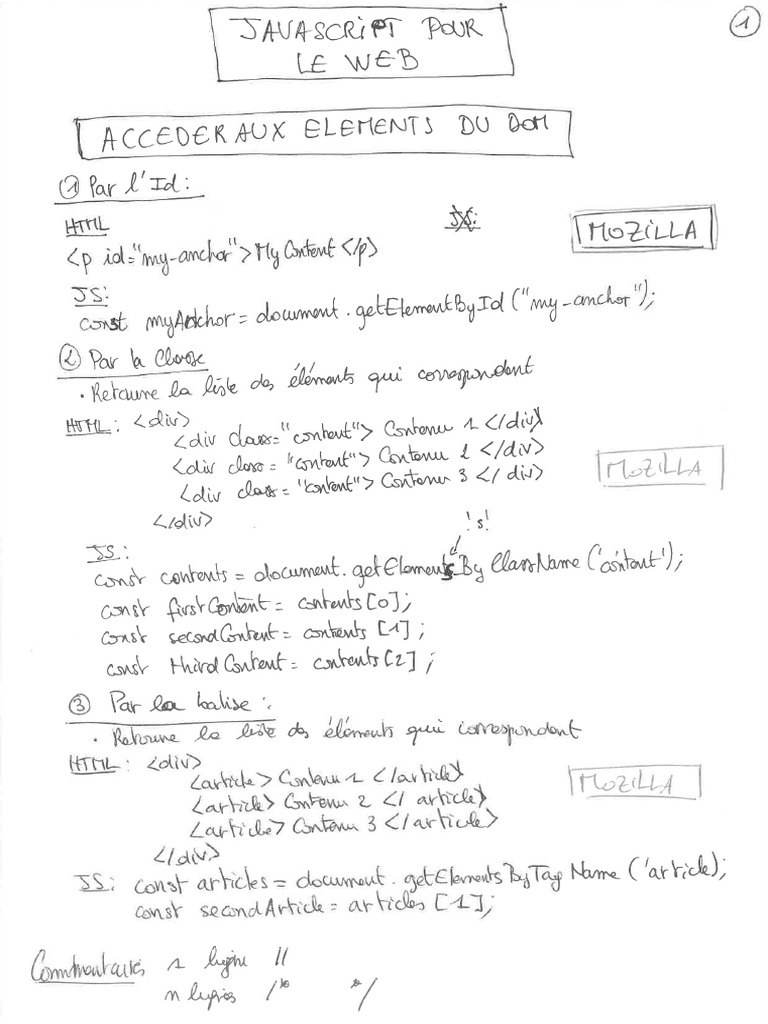 JAVASCRIPT POUR
LE WEB
1
ACCEDER AUX ELEMENTS DU DOM
① Par l'Id:
HTML
JS:
MOZILLA
<p id="my-anchor">My Content</p>
JS:
const myAnchor = document.getElementById("my-anchor");
② Par la Classe
• Retourne la liste des éléments qui correspondent
HTML: <div>
<div class="content"> Contenu 1 </div>
<div class="content"> Contenu 2 </div>
<div class="content"> Contenu 3 </div>
MOZILLA
</div>
!s!
JS:
const contents = document.getElementsByClassName('content');
const firstContent = contents[0];
const secondContent = contents[1];
const thirdContent = contents[2];
③ Par la balise:
• Retourne la liste des éléments qui correspondent
HTML: <div>
<article> Contenu 1 </article>
MOZILLA
<article> Contenu 2 </article>
<article> Contenu 3 </article>
</div>
JS: const articles = document.getElementsByTagName('article);
const secondArticle = articles[1];
Commentaires 1 ligne //
n lignes /* */